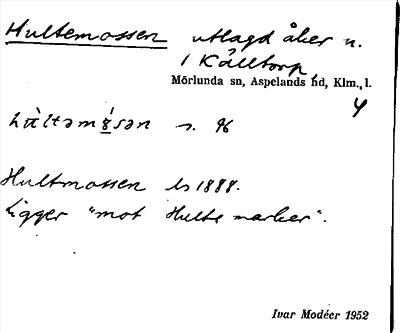 Hultemossen utlagd åker n.
1 Källtorp
Mörlunda sn, Aspelands hd, Klm. l.
4
s. 96
Hultmossen ls 1888.
Ligger "mot Hulte marker".
Ivar Modéer 1952